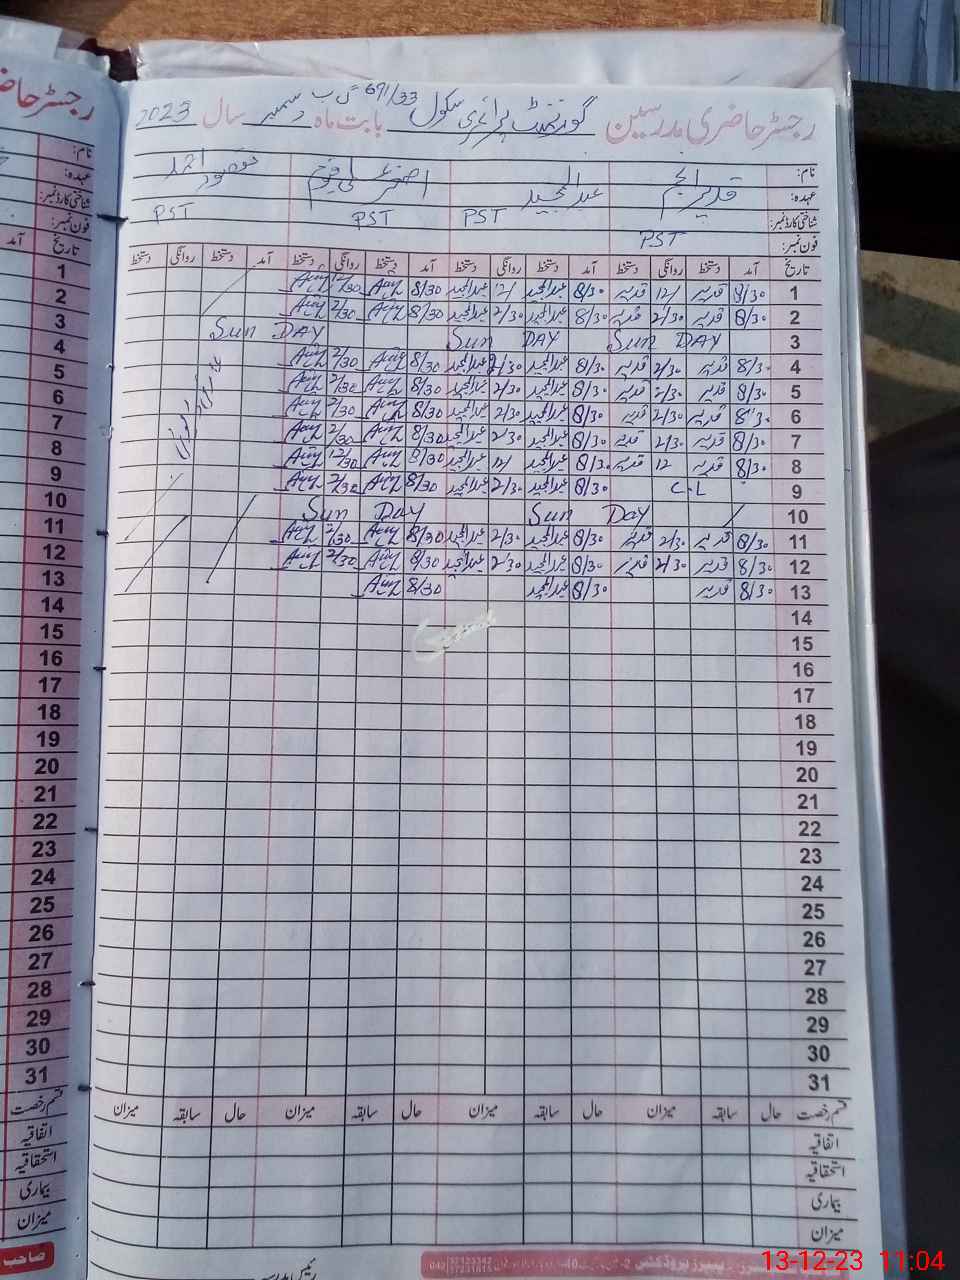 رجسٹر حاضری مدرسین گورنمنٹ پرائمری سکول 691/33 گ ب بابت ماہ دسمبر سال 2023
نام: قدیر انجم عبدالمجید اصغر علی
عہدہ:
شناختی کارڈ نمبر: PST PST PST
فون نمبر: PST
تاریخ آمد دستخط روانگی دستخط آمد دستخط روانگی دستخط آمد دستخط روانگی دستخط آمد دستخط روانگی دستخط
1 8/30 قدیر 12/ قدیر 8/30 عبدالمجید 12/ عبدالمجید 8/30 12/30
2 8/30 قدیر 2/30 قدیر 8/30 عبدالمجید 2/30 عبدالمجید 8/30 2/30
3 Sun DAY Sun DAY Sun DAY
4 8/30 قدیر 2/30 قدیر 8/30 عبدالمجید 2/30 عبدالمجید 8/30 2/30
5 8/30 قدیر 2/30 قدیر 8/30 عبدالمجید 2/30 عبدالمجید 8/30 2/30
6 8/30 قدیر 2/30 قدیر 8/30 عبدالمجید 2/30 عبدالمجید 8/30 2/30
7 8/30 قدیر 2/30 قدیر 8/30 عبدالمجید 2/30 عبدالمجید 8/30 2/30
8 8/30 قدیر 12 قدیر 8/30 عبدالمجید 12/ عبدالمجید 8/30 12/30
9 C.L 8/30 عبدالمجید 2/30 عبدالمجید 8/30 2/30
10 Sun Day Sun DAY
11 8/30 قدیر 2/30 قدیر 8/30 عبدالمجید 2/30 عبدالمجید 8/30 2/30
12 8/30 قدیر 2/30 قدیر 8/30 عبدالمجید 2/30 عبدالمجید 8/30 2/30
13 8/30 قدیر 8/30 عبدالمجید 8/30
14
15
16
17
18
19
20
21
22
23
24
25
26
27
28
29
30
31
قسم رخصت حال سابقہ میزان حال سابقہ میزان حال سابقہ میزان حال سابقہ میزان
اتفاقیہ
استحقاقیہ
بیماری
میزان
رجسٹر حاضری
نام:
عہدہ:
شناختی کارڈ نمبر:
فون نمبر:
تاریخ آمد
1
2
3
4
5
6
7
8
9
10
11
12
13
14
15
16
17
18
19
20
21
22
23
24
25
26
27
28
29
30
31
قسم رخصت
اتفاقیہ
استحقاقیہ
بیماری
میزان
صاحب
13-12-23 11:04